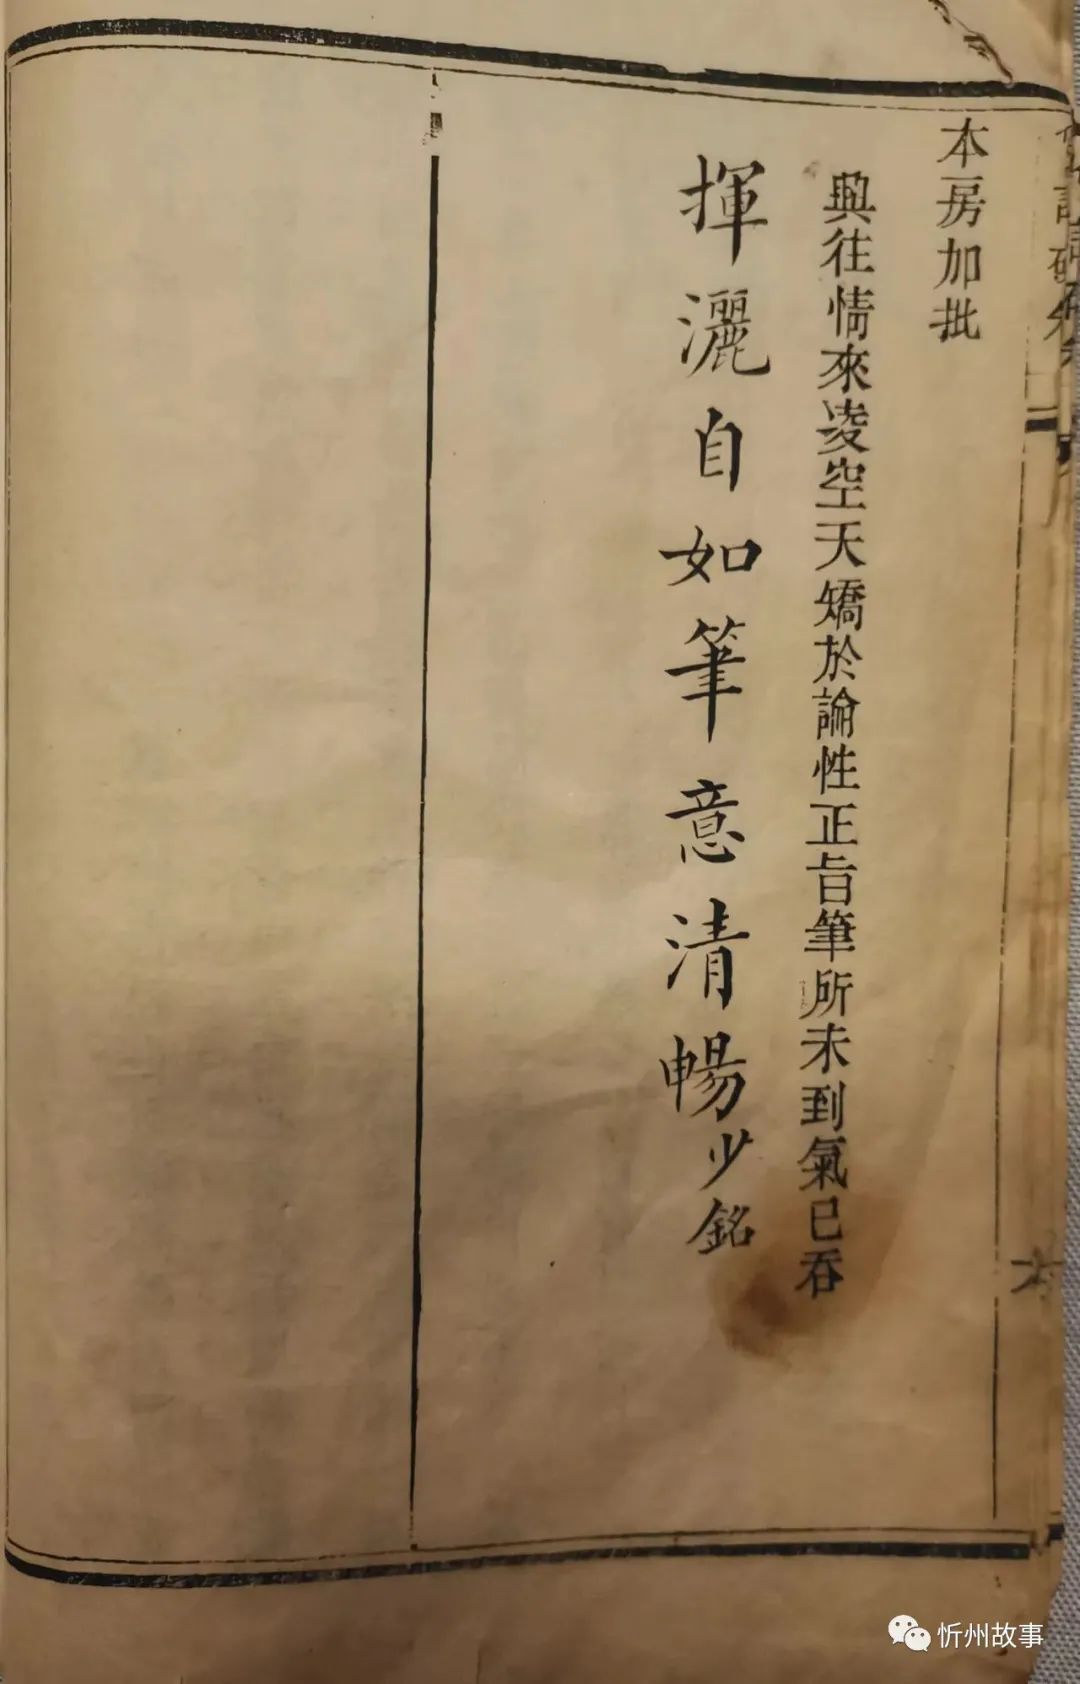 本房加批
興往情來凌空天矯於論性正旨筆所未到氣已吞
揮灑自如筆意清暢少銘
忻州故事